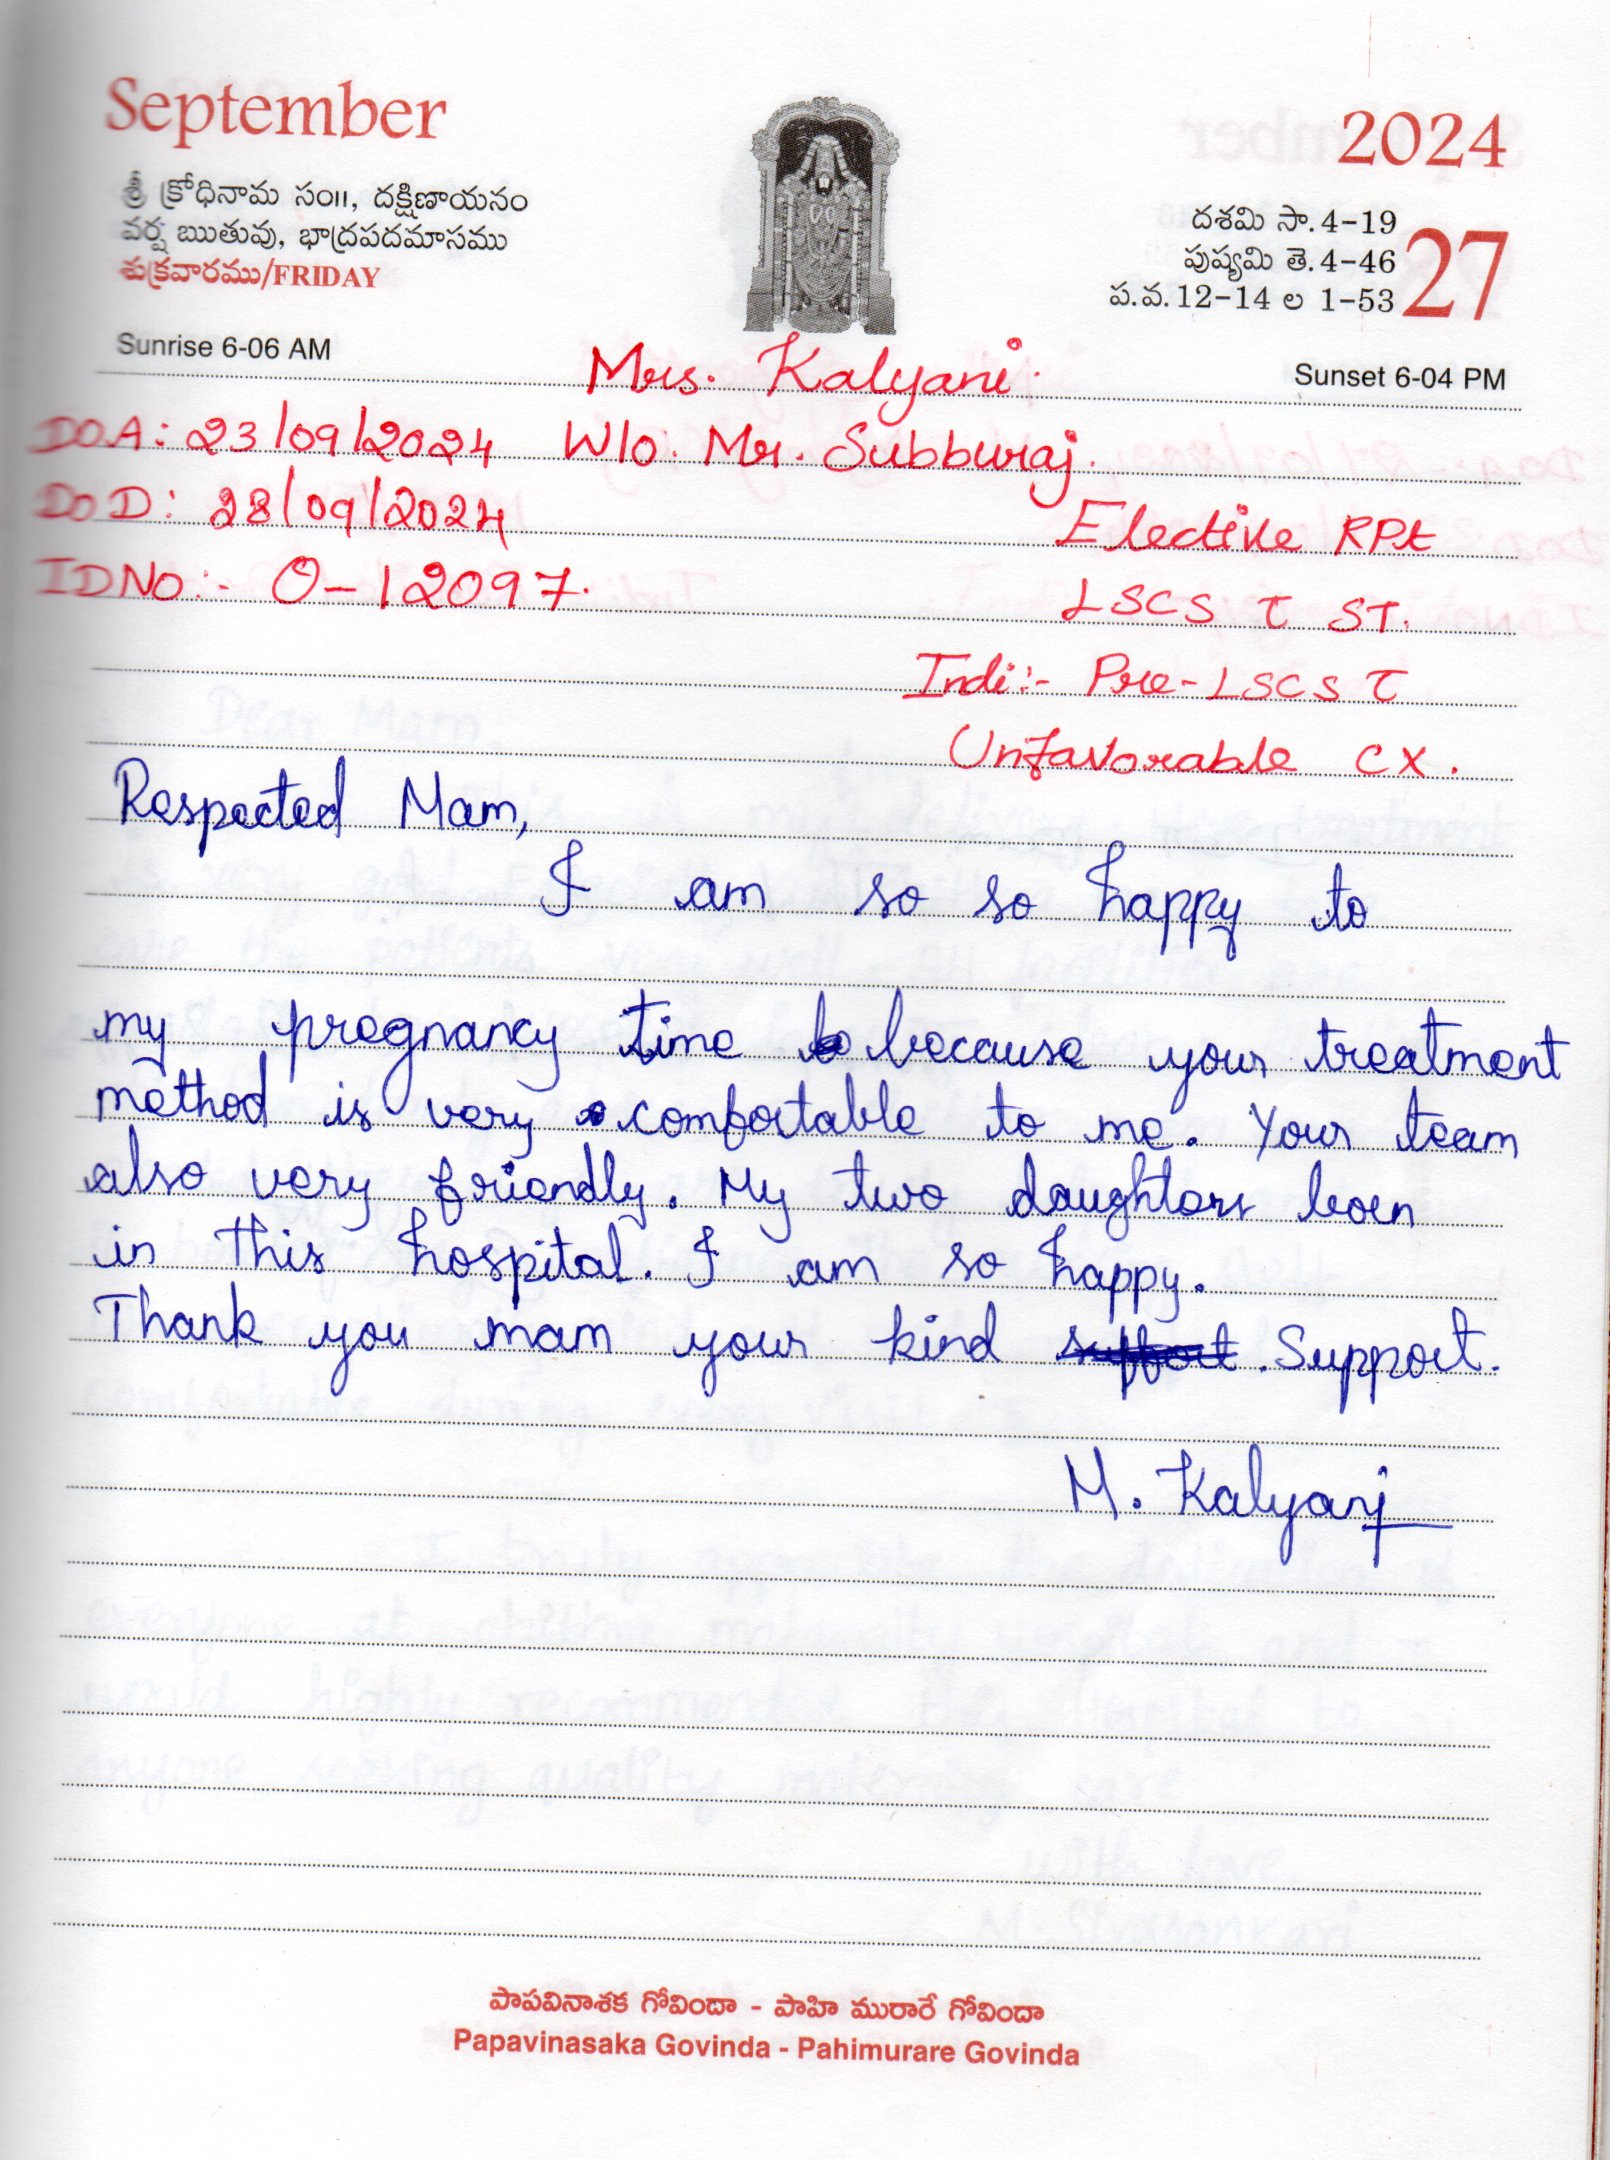 September
2024
శ్రీ క్రోధినామ సం॥, దక్షిణాయనం
వర్ష ఋతువు, భాద్రపదమాసము
శుక్రవారము/FRIDAY
దశమి సా.4-19
పుష్యమి తె.4-46
ప.వ.12-14 ల 1-53
27
Sunrise 6-06 AM
Sunset 6-04 PM
Mrs. Kalyani.
DOA: 23/09/2024 W/o. Mr. Subburaj.
DOD: 28/09/2024
Elective RPt
IDNo:- O-12097.
LSCS C ST.
Indi:- Pre-LSCS C
Unfavorable CX.
Respected Mam,
I am so so happy to
my pregnancy time because your treatment
method is very comfortable to me. Your team
also very friendly. My two daughters born
in this hospital. I am so happy.
Thank you mam your kind support. Support.
M. Kalyani
పాపవినాశక గోవిందా - పాహి మురారే గోవిందా
Papavinasaka Govinda - Pahimurare Govinda